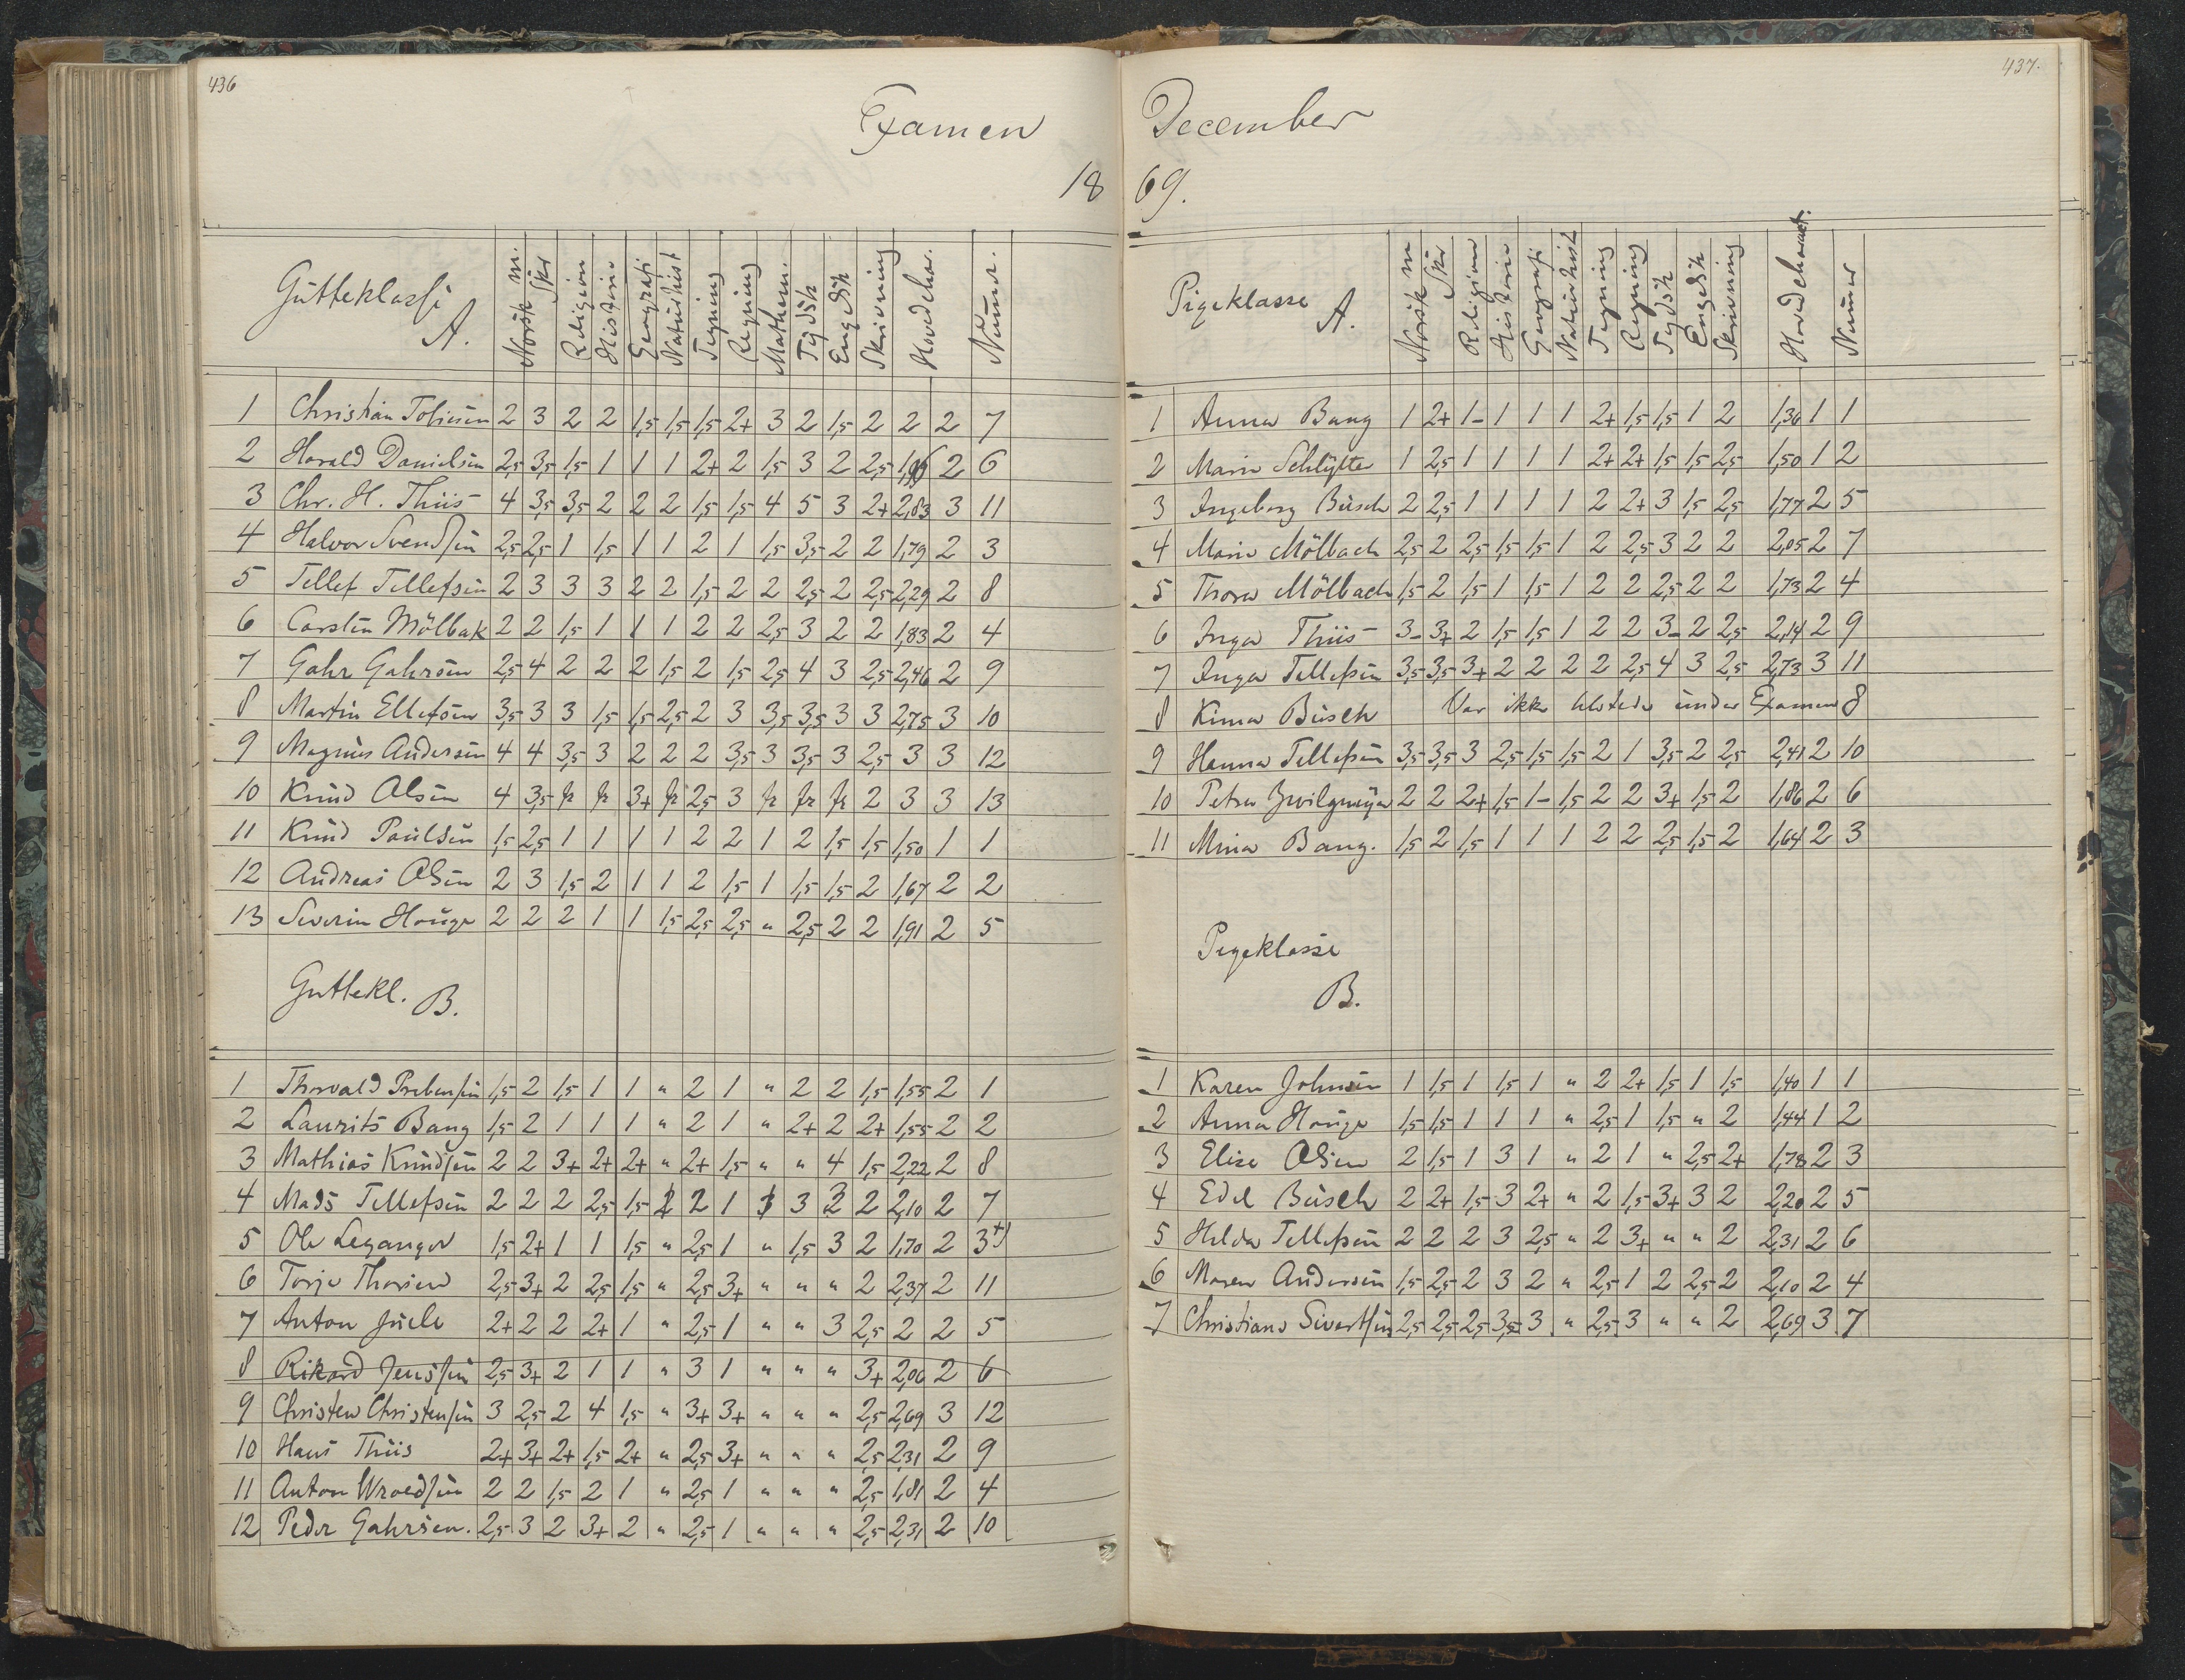 436
Examen
18
Gutteklasse A. Norsk m. Skr Religion Historie Geografi Naturhist Tegning Regning Mathem. Tydsk Engelsk Skrivning Hovedchar. Numer.
1 Christian Tobiesen 2 3 2 2 1,5 1,5 1,5 2+ 3 2 1,5 2 2 2 7
2 Harald Danielsen 2,5 3,5 1,5 1 1 1 2+ 2 1,5 3 2 2,5 2 6
3 Chr. H. Thiis 4 3,5 3,5 2 2 2 1,5 1,5 4 5 3 2+ 2,83 3 11
4 Halvor Svendsen 2,5 2,5 1 1,5 1 1 2 1 1,5 3,5 2 2 1,79 2 3
5 Tellef Tellefsen 2 3 3 3 2 2 1,5 2 2 2,5 2 2,5 2,29 2 8
6 Carsten Mölbak 2 2 1,5 1 1 1 2 2 2,5 3 2 2 1,83 2 4
7 Gahr Gahrsen 2,5 4 2 2 2 1,5 2 1,5 2,5 4 3 2,5 2,46 2 9
8 Martin Ellefsen 3,5 3 3 1,5 1,5 2,5 2 3 3,5 3,5 3 3 2,75 3 10
9 Magnus Andersen 4 4 3,5 3 2 2 2 3,5 3 3,5 3 2,5 3 3 12
10 Knud Olsen 4 3,5 fr fr 3+ fr 2,5 3 fr fr fr 2 3 3 13
11 Knud Paulsen 1,5 2,5 1 1 1 1 2 2 1 2 1,5 1,5 1,50 1 1
12 Andreas Olsen 2 3 1,5 2 1 1 2 1,5 1 1,5 1,5 2 1,67 2 2
13 Severin Houge 2 2 2 1 1 1,5 2,5 2,5 " 2,5 2 2 1,91 2 5
Guttekl. B.
1 Thorvald Prebensen 1,5 2 1,5 1 1 " 2 1 " 2 2 1,5 1,55 2 1
2 Laurits Bang 1,5 2 1 1 1 " 2 1 " 2+ 2 2+ 1,55 2 2
3 Mathias Knudsen 2 2 3+ 2+ 2+ " 2+ 1,5 " " 4 1,5 2,22 2 8
4 Mads Tellefsen 2 2 2 2,5 1,5 2 1 3 2 2,10 2 7
5 Ole Leganger 1,5 2+ 1 1 1,5 " 2,5 1 " 1,5 3 2 1,70 2 3+)
6 Torje Thorsen 2,5 3+ 2 2,5 1,5 " 2,5 3+ " " " 2 2,37 2 11
7 Anton Juele 2+ 2 2 2+ 1 " 2,5 1 " " 3 2,5 2 2 5
8 Rikard Jenssen 2,5 3+ 2 1 1 " 3 1 " " " 3+ 2,06 2 6
9 Christen Christensen 3 2,5 2 4 1,5 " 3+ 3+ " " " 2,5 2,69 3 12
10 Hans Thiis 2+ 3+ 2+ 1,5 2+ " 2,5 3+ " " " 2,5 2,31 2 9
11 Anton Wroldsen 2 2 1,5 2 1 " 2,5 1 " " " 2,5 1,81 2 4
12 Peder Gahrsen. 2,5 3 2 3+ 2 " 2,5 1 " " " 2,5 2,31 2 10
437.
December
69.
Pigeklasse A. Norsk m Skr Religion Historie Geografi Naturhist Tegning Regning Tydsk Engelsk Skrivning Hovedcharact. Numer
1 Anna Bang 1 2+ 1- 1 1 1 2+ 1,5 1,5 1 2 1,36 1 1
2 Marie Schlytter 1 2,5 1 1 1 1 2+ 2+ 1,5 1,5 2,5 1,50 1 2
3 Ingeborg Busch 2 2,5 1 1 1 1 2 2+ 3 1,5 2,5 1,77 2 5
4 Marie Mölbach 2,5 2 2,5 1,5 1,5 1 2 2,5 3 2 2 2,05 2 7
5 Thora Mölbach 1,5 2 1,5 1 1,5 1 2 2 2,5 2 2 1,73 2 4
6 Inga Thiis 3- 3+ 2 1,5 1,5 1 2 2 3- 2 2,5 2,14 2 9
7 Inga Tellefsen 3,5 3,5 3+ 2 2 2 2 2,5 4 3 2,5 2,73 3 11
8 Kima Busch Var ikke tilstede under Examen 8
9 Hanna Tellefsen 3,5 3,5 3 2,5 1,5 1,5 2 1 3,5 2 2,5 2,41 2 10
10 Petra Zwilgmeyer 2 2 2+ 1,5 1- 1,5 2 2 3+ 1,5 2 1,86 2 6
11 Mina Bang. 1,5 2 1,5 1 1 1 2 2 2,5 1,5 2 1,64 2 3
Pigeklasse B.
1 Karen Johnsen 1 1,5 1 1,5 1 " 2 2+ 1,5 1 1,5 1,40 1 1
2 Anna Houge 1,5 1,5 1 1 1 " 2,5 1 1,5 " 2 1,44 1 2
3 Elise Olsen 2 1,5 1 3 1 " 2 1 " 2,5 2+ 1,78 2 3
4 Edel Busch 2 2+ 1,5 3 2+ " 2 1,5 3+ 3 2 2,20 2 5
5 Helda Tellefsen 2 2 2 3 2,5 " 2 3+ " " 2 2,31 2 6
6 Maren Andersen 1,5 2,5 2 3 2 " 2,5 1 2 2,5 2 2,10 2 4
7 Christiane Sivertsen 2,5 2,5 2,5 3,5 3 " 2,5 3 " " 2 2,69 3 7